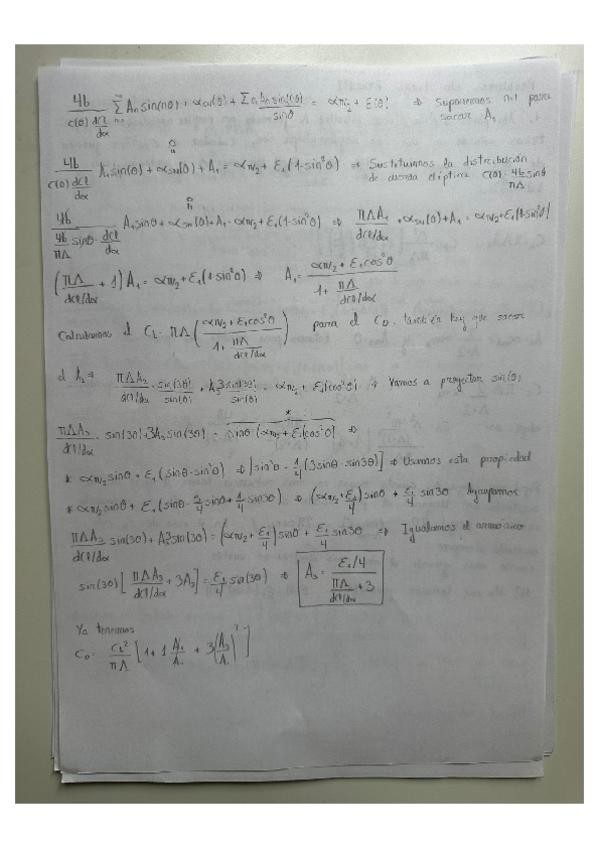 4b / (c(θ) dCl/dα) Σ An sin(nθ) + α_sl(θ) + Σ n An sin(nθ) / sinθ = α_N/2 + ε(θ) ⇒ Suponemos n=1 para sacar A₁
4b / (c(θ) dCl/dα) A₁ sin(θ) + α_sl(θ) + A₁ = α_N/2 + ε₁(1-sin²θ) ⇒ Sustituimos la distribución de cuerda elíptica c(θ) = 4b/πΛ sinθ
4b / (4b/πΛ sinθ · dCl/dα) A₁ sinθ + α_sl(θ) + A₁ = α_N/2 + ε₁(1-sin²θ) ⇒ πΛA₁ / (dCl/dα) + α_sl(θ) + A₁ = α_N/2 + ε₁(1-sin²θ)
(πΛ / (dCl/dα) + 1) A₁ = α_N/2 + ε₁(1-sin²θ) ⇒ A₁ = (α_N/2 + ε₁cos²θ) / (1 + πΛ / (dCl/dα))
Calculamos el CL = πΛ ((α_N/2 + ε₁cos²θ) / (1 + πΛ / (dCl/dα))) para el CD, también hay que sacar
el A₃ ⇒ πΛA₃ / (dCl/dα) · sin(3θ) / sin(θ) + A₃ 3 sin(3θ) / sin(θ) = α_N/2 + ε₁(cos²θ) ⇒ Vamos a proyectar sin(θ)
πΛA₃ / (dCl/dα) · sin(3θ) + 3A₃ sin(3θ) = sinθ (α_N/2 + ε₁(cos²θ)) ⇒
* α_N/2 sinθ + ε₁(sinθ - sin³θ) ⇒ [sin³θ = 1/4 (3sinθ - sin3θ)] ⇒ Usamos esta propiedad
* α_N/2 sinθ + ε₁(sinθ - 3/4 sinθ + 1/4 sin3θ) ⇒ (α_N/2 + ε₁/4) sinθ + ε₁/4 sin3θ Agrupamos
πΛA₃ / (dCl/dα) sin(3θ) + A₃ 3 sin(3θ) = (α_N/2 + ε₁/4) sinθ + ε₁/4 sin3θ ⇒ Igualamos el armónico
sin(3θ) [πΛA₃ / (dCl/dα) + 3A₃] = ε₁/4 sin(3θ) ⇒ A₃ = (ε₁/4) / (πΛ / (dCl/dα) + 3)
Ya tenemos
CD = CL² / πΛ [1 + 1 A₁/A₁ + 3 (A₃/A₁)²]